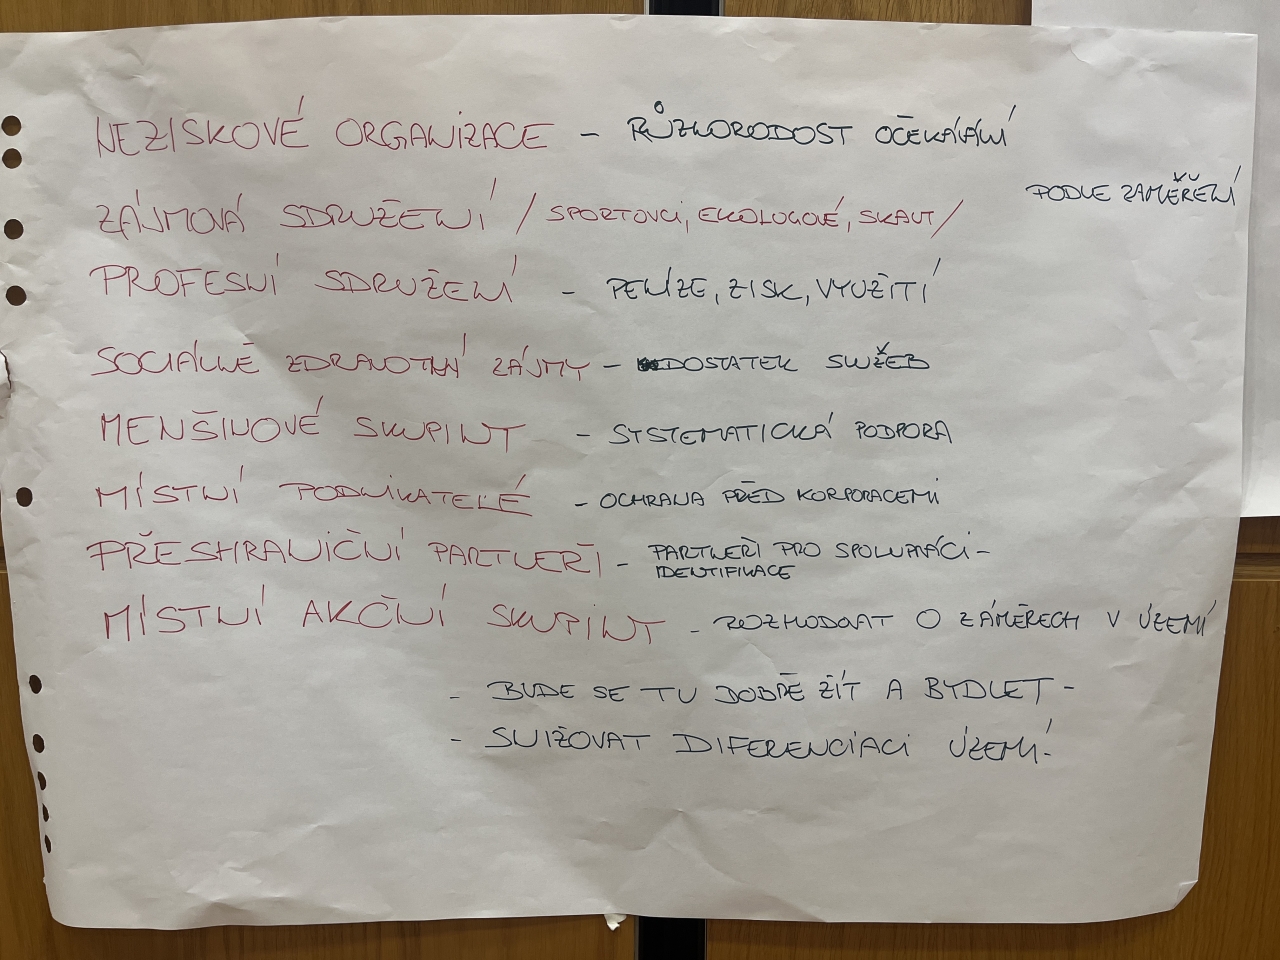 NEZISKOVÉ ORGANIZACE - RŮZNORODOST OČEKÁVÁNÍ
PODLE ZAMĚŘENÍ
ZÁJMOVÁ SDRUŽENÍ / SPORTOVCI, EKOLOGOVÉ, SKAUT /
PROFESNÍ SDRUŽENÍ - PENÍZE, ZISK, VYUŽITÍ
SOCIÁLNĚ ZDRAVOTNÍ ZÁJMY - DOSTATEK SLUŽEB
MENŠINOVÉ SKUPINY - SYSTEMATICKÁ PODPORA
MÍSTNÍ PODNIKATELÉ - OCHRANA PŘED KORPORACEMI
PŘESHRANIČNÍ PARTNEŘI - PARTNEŘI PRO SPOLUPRÁCI -
IDENTIFIKACE
MÍSTNÍ AKČNÍ SKUPINY - ROZHODOVAT O ZÁMĚRECH V ÚZEMÍ
- BUDE SE TU DOBŘE ŽÍT A BYDLET -
- SNIŽOVAT DIFERENCIACI ÚZEMÍ -